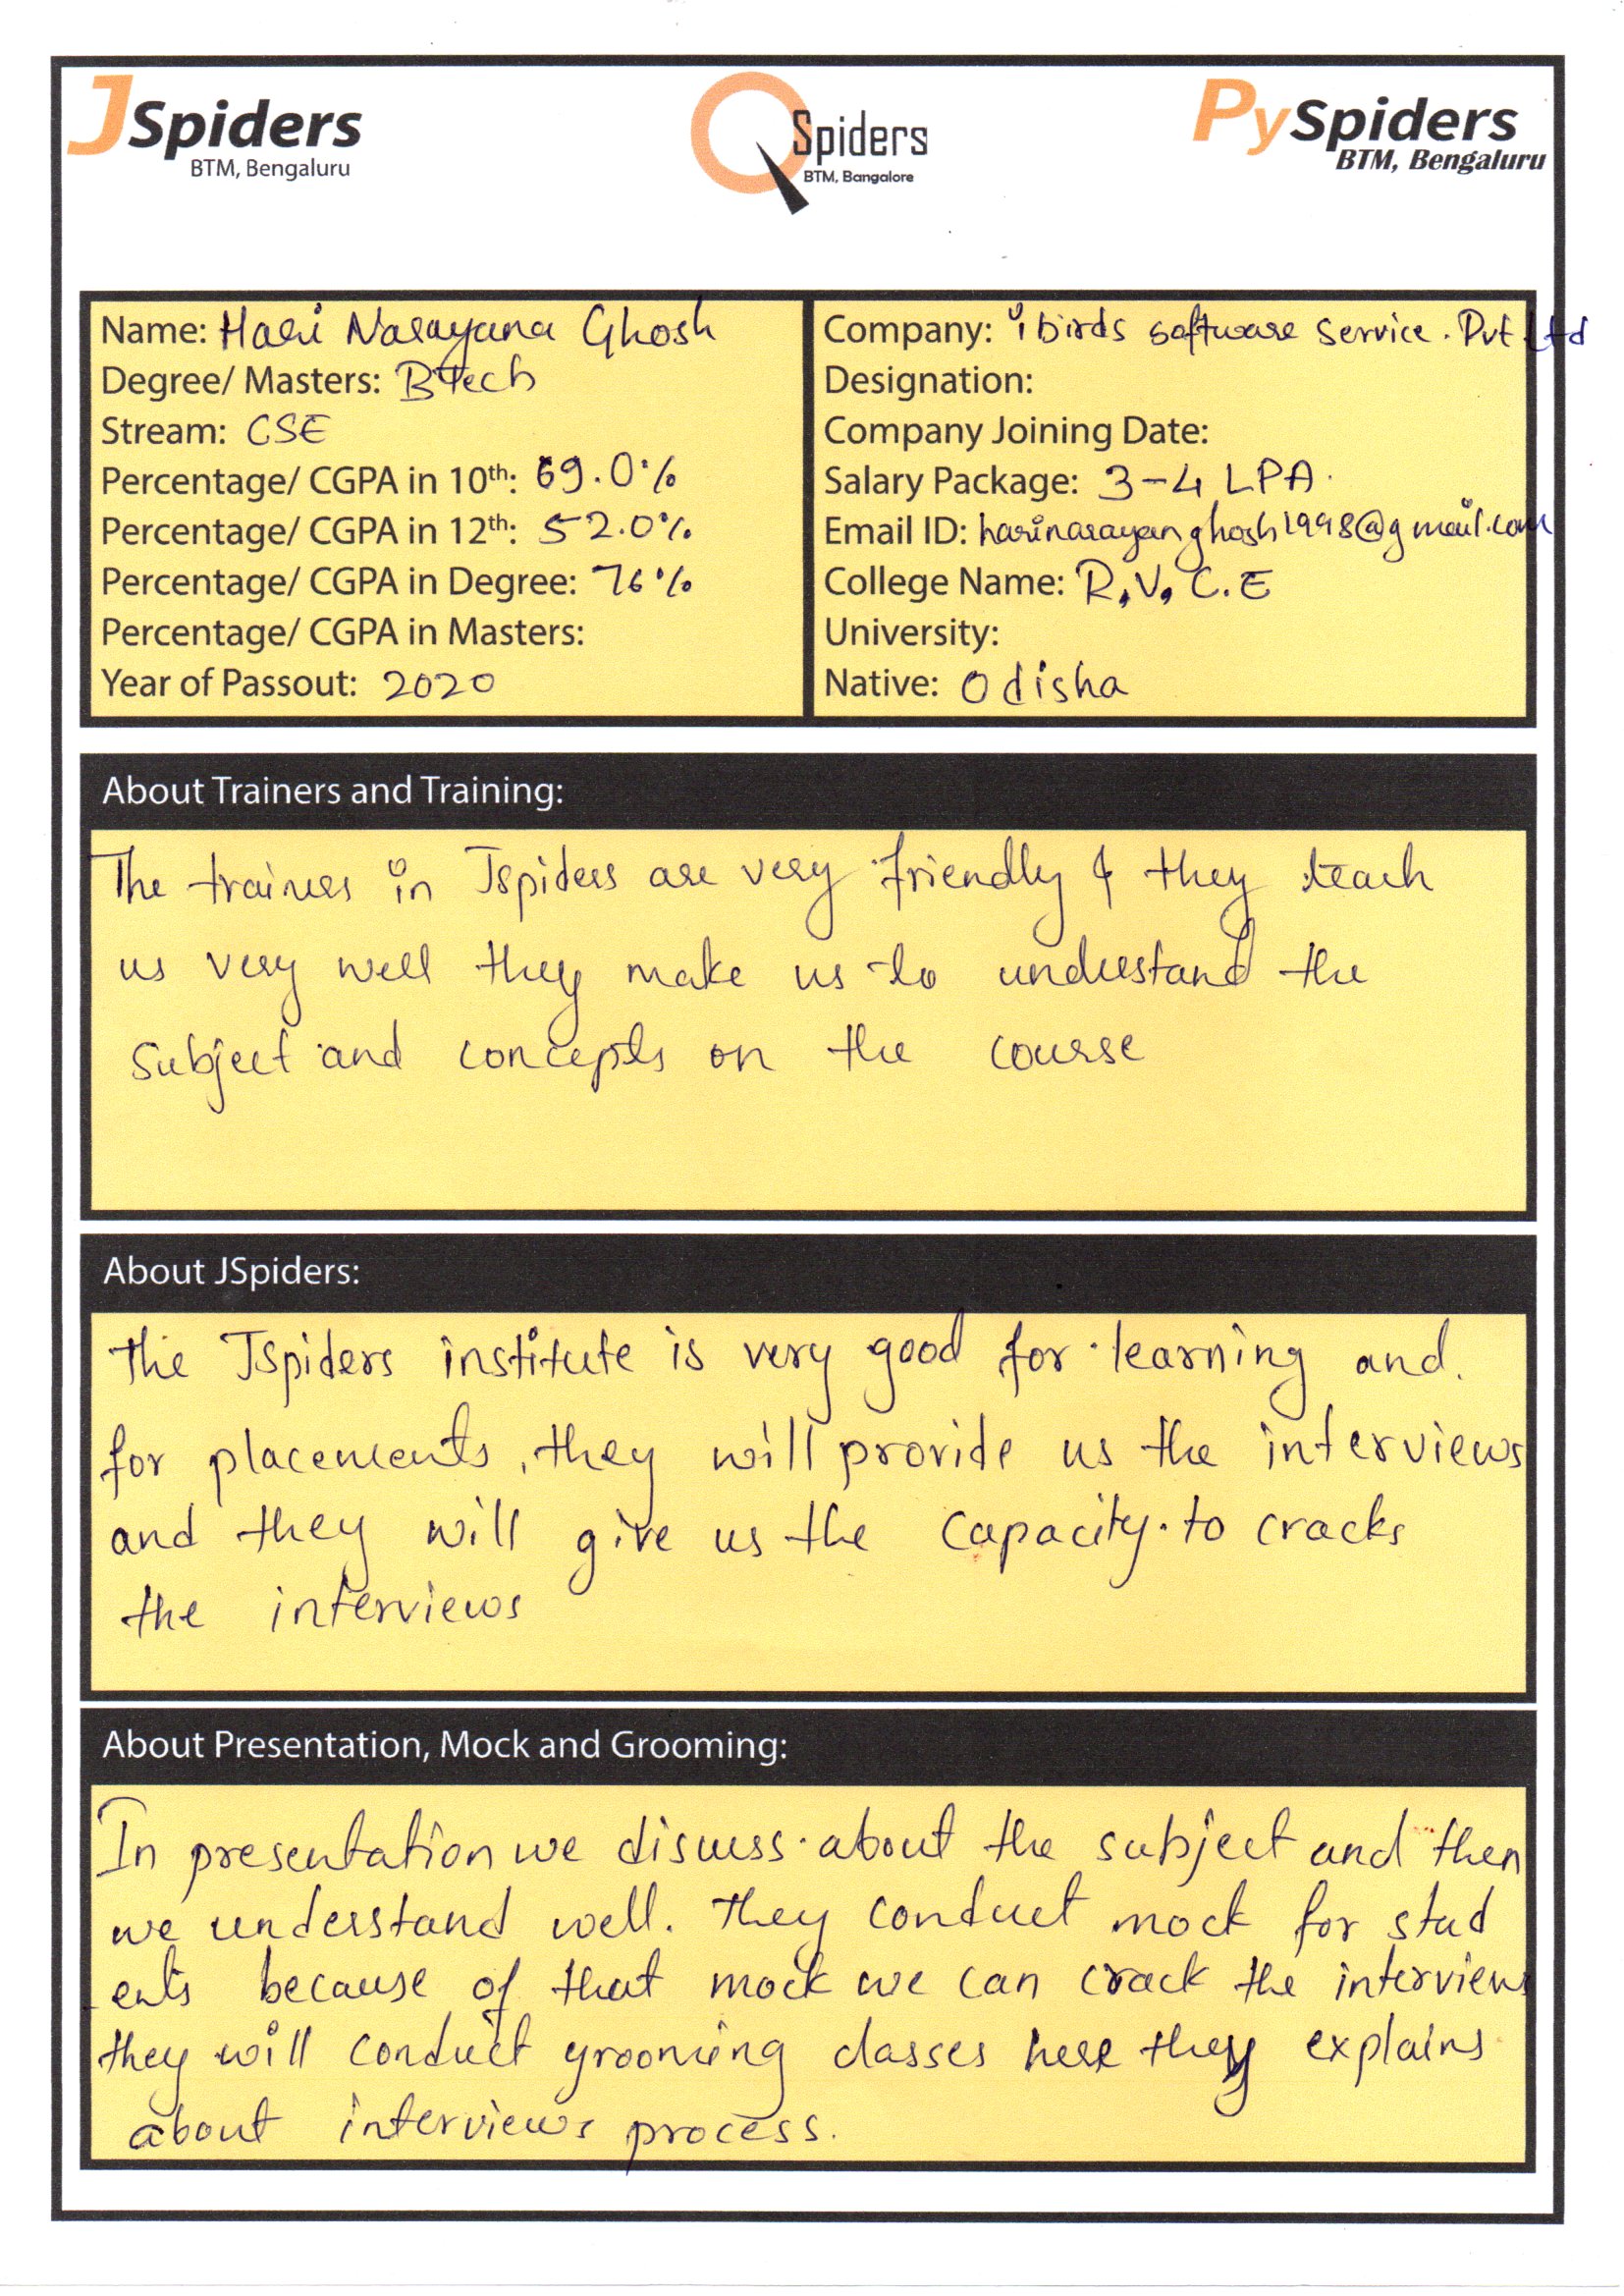 JSpiders
BTM, Bengaluru
QSpiders
BTM, Bangalore
PySpiders
BTM, Bengaluru
Name: Hari Narayana Ghosh
Degree/ Masters: BTech
Stream: CSE
Percentage/ CGPA in 10th: 69.0%
Percentage/ CGPA in 12th: 52.0%
Percentage/ CGPA in Degree: 76%
Percentage/ CGPA in Masters:
Year of Passout: 2020
Company: ibirds software service. Pvt Ltd
Designation:
Company Joining Date:
Salary Package: 3-4 LPA.
Email ID: harinarayanghosh1998@gmail.com
College Name: R.V.C.E
University:
Native: Odisha
About Trainers and Training:
The trainers in Jspiders are very friendly & they teach
us very well they make us to understand the
subject and concepts on the course
About JSpiders:
The Jspiders institute is very good for learning and.
for placements, they will provide us the interviews
and they will give us the capacity to cracks
the interviews
About Presentation, Mock and Grooming:
In presentation we discuss about the subject and then
we understand well. They conduct mock for stud
ents because of that mock we can crack the interviews
they will conduct grooming classes here they explains
about interviews process.